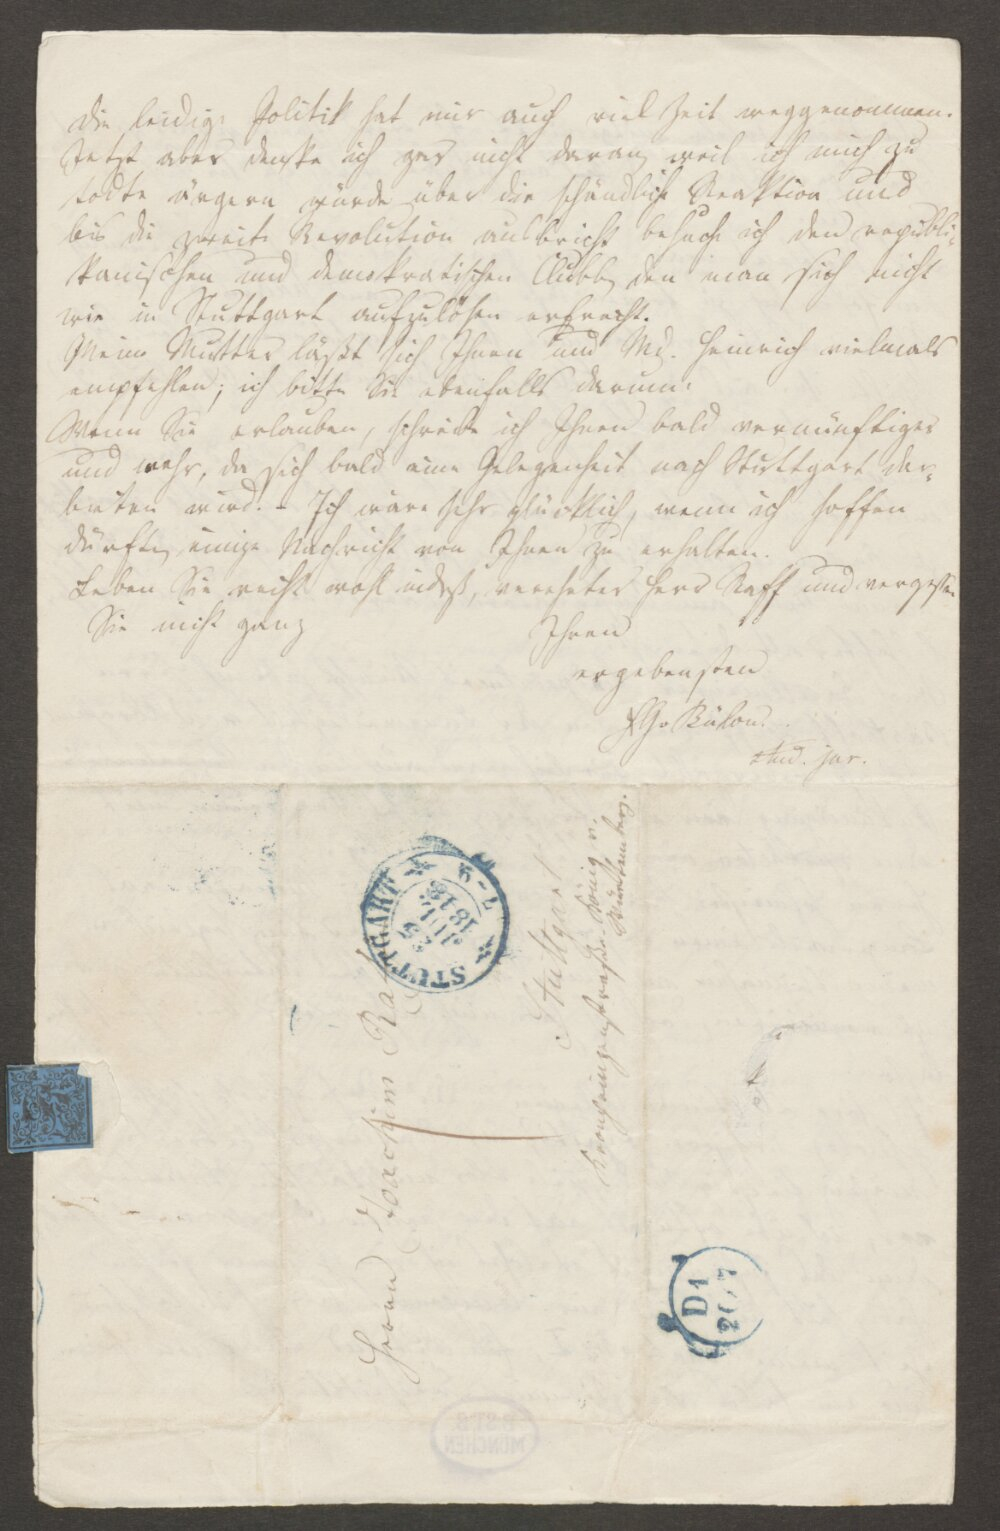 Die leidige Politik hat mir auch viel Zeit weggenommen.
Jetzt aber denke ich gar nicht daran, weil ich mich zu
todte ärgern würde über die schändliche Reaktion und
bis die zweite Revolution ausbricht besuche ich den republi-
kanischen und demokratischen Clubb, den man sich nicht
wie in Stuttgart aufzulösen erfrecht.
Meine Mutter läßt sich Ihnen und Md. Heinrich vielmals
empfehlen; ich bitte Sie ebenfalls darum.
Wenn Sie erlauben, schreibe ich Ihnen bald vernünftiger
und mehr, da sich bald eine Gelegenheit nach Stuttgart dar-
bieten wird. – Ich wäre sehr glücklich, wenn ich hoffen
dürfte, einige Nachricht von Ihnen zu erhalten.
Leben Sie recht wohl indeß, verehrter Herr Raff und vergessen
Sie nicht ganz
Ihren
ergebensten
HGvBülow.
stud. jur.
Herrn Joachim Raff
Stuttgart
Kronprinzenstraße. König v.
Württemberg.
STUTTGART
D1
MÜNCHEN